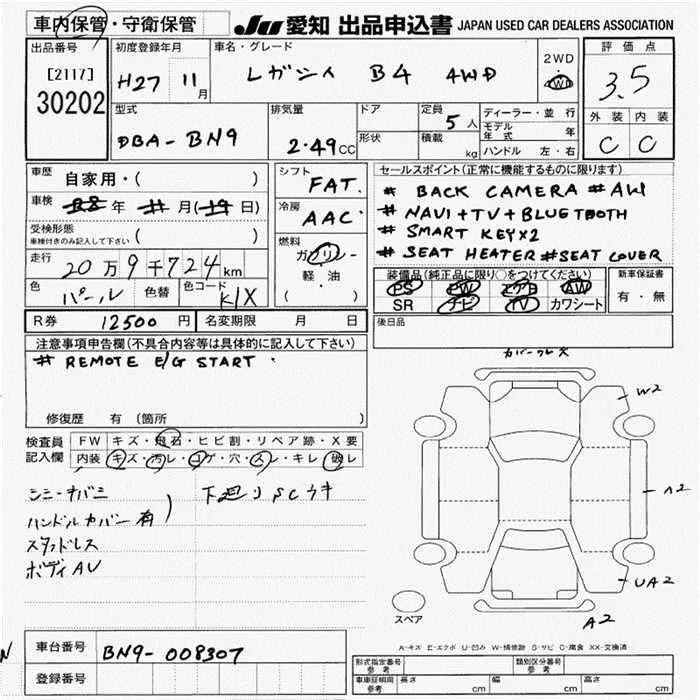 車内保管・守衛保管
JU 愛知 出品申込書 JAPAN USED CAR DEALERS ASSOCIATION
出品番号
[2117]
30202
初度登録年月
H27 11月
車名・グレード
レガシィ B4 4WD
2WD
4WD
評価点
3.5
外装 内装
C C
型式
DBA-BN9
排気量
2.49CC
ドア
形状
定員
5人
積載
kg
ディーラー・並行
モデル年式 年
ハンドル 左・右
車歴
自家用・( )
車検
年 月( 日)
受検形態
車検付きのみ記入して下さい ( )
走行
20万9千724km
色
パール
色替
色コード
K1X
シフト
FAT
冷房
AAC
燃料
ガソリン
軽・油
( )
セールスポイント(正常に機能するものに限ります)
# BACK CAMERA # AW
# NAVI+TV+BLUETOOTH
# SMART KEYX2
# SEAT HEATER #SEAT COVER
装備品(純正品に限り○をつけてください)
PS PW エアB AW
SR ナビ TV カワシート
新車保証書
有・無
R券 12500円
名変期限 月 日
後日品
注意事項申告欄(不具合内容等は具体的に記入して下さい)
# REMOTE E/G START
修復歴 有(箇所 )
検査員
記入欄
FW キズ・飛石・ヒビ割・リペア跡・X要
内装 キズ・汚レ・コゲ・穴・スレ・キレ・破レ
ハンドルカバー有
スタッドレス
ボディAU
下廻りSCウキ
W2
A2
UA2
A2
スペア
A-キズ E-エクボ U-凹み W-補修跡 S-サビ C-腐食 XX-交換済
車台番号
BN9-008307
登録番号
型式指定番号 参考
類別区分番号 参考
車庫証明用 参考
長さ cm 幅 cm 高さ cm